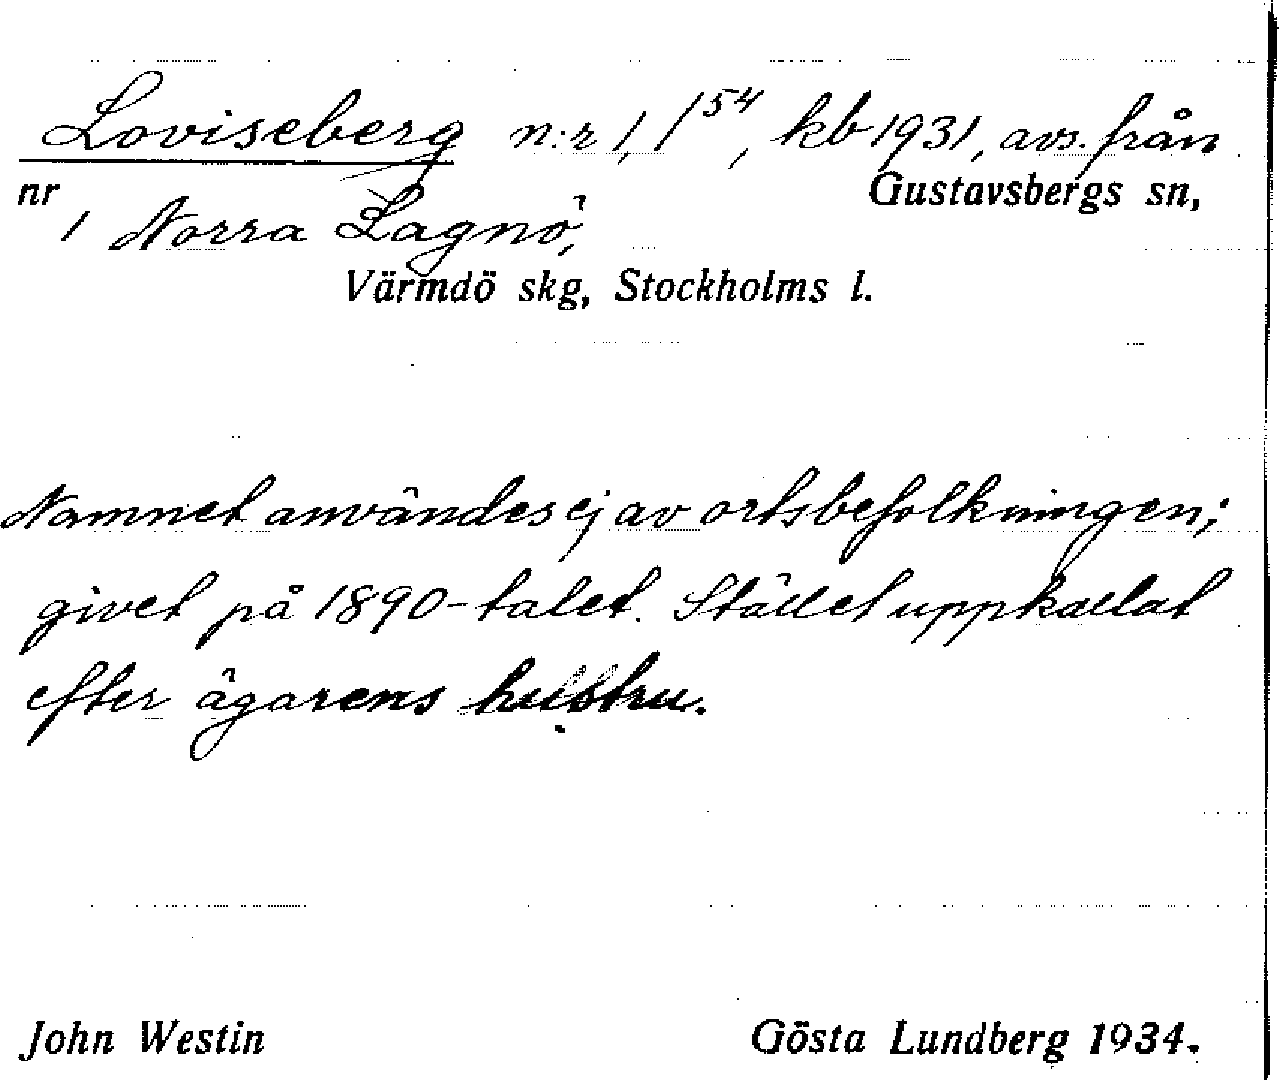 Loviseberg n:r 1, 1⁵⁴, kb 1931, avs. från
nr Gustavsbergs sn,
1 Norra Lagnö,
Värmdö skg, Stockholms l.
Namnet användes ej av ortsbefolkningen;
givet på 1890-talet. Stället uppkallat
efter ägarens hustru.
John Westin Gösta Lundberg 1934.